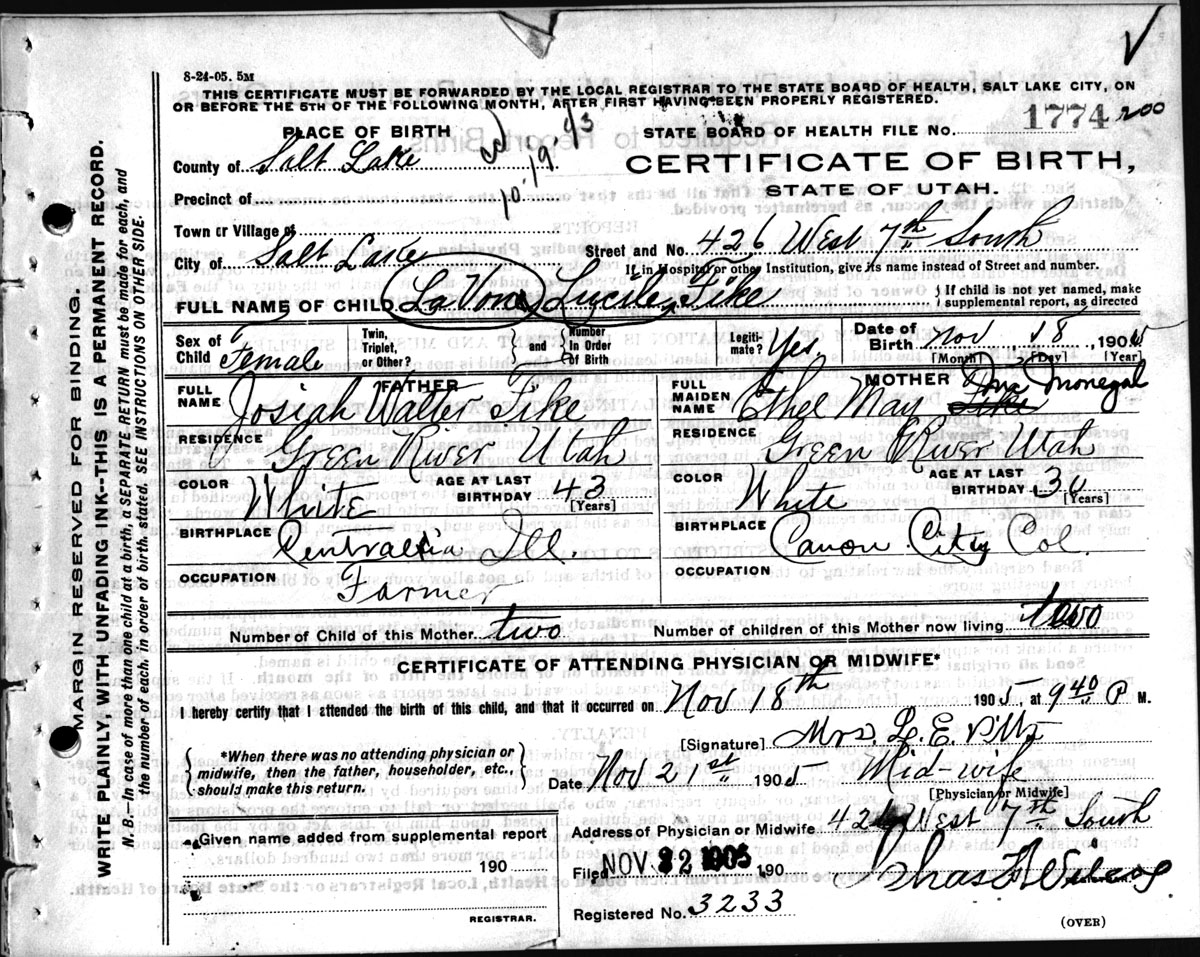 8-24-05. 5M
THIS CERTIFICATE MUST BE FORWARDED BY THE LOCAL REGISTRAR TO THE STATE BOARD OF HEALTH, SALT LAKE CITY, ON
OR BEFORE THE 5TH OF THE FOLLOWING MONTH, AFTER FIRST HAVING BEEN PROPERLY REGISTERED.
PLACE OF BIRTH
10.19.93
STATE BOARD OF HEALTH FILE No. 1774 200
County of Salt Lake
CERTIFICATE OF BIRTH,
STATE OF UTAH.
Precinct of
Town or Village of
City of Salt Lake
Street and No. 426 West 7th South
If in Hospital or other Institution, give its name instead of Street and number.
FULL NAME OF CHILD La Vone Lucile Fike
If child is not yet named, make
supplemental report, as directed
Sex of Child Female
Twin, Triplet, or Other?
and
Number In Order of Birth
Legiti- mate? Yes
Date of Birth Nov 18, 1905
[Month] [Day] [Year]
FATHER
FULL NAME Josiah Walter Fike
RESIDENCE Green River Utah
COLOR White
AGE AT LAST BIRTHDAY 43
[Years]
BIRTHPLACE Centralia Ill.
OCCUPATION Farmer
MOTHER
FULL MAIDEN NAME Ethel May Fike
RESIDENCE Green River Utah
COLOR White
AGE AT LAST BIRTHDAY 30
[Years]
BIRTHPLACE Canon City Col.
OCCUPATION
Number of Child of this Mother two
Number of children of this Mother now living two
CERTIFICATE OF ATTENDING PHYSICIAN OR MIDWIFE*
I hereby certify that I attended the birth of this child, and that it occurred on Nov 18th 1905, at 9 40 P M.
*When there was no attending physician or
midwife, then the father, householder, etc.,
should make this return.
[Signature] Mrs. L. E. Pitts
Date Nov 21st 1905 Mid-wife
[Physician or Midwife]
Given name added from supplemental report
190
REGISTRAR.
Address of Physician or Midwife 426 West 7th South
Filed NOV 22 1905 190
Registered No. 3233
(OVER)
MARGIN RESERVED FOR BINDING.
WRITE PLAINLY, WITH UNFADING INK--THIS IS A PERMANENT RECORD.
N. B.--In case of more than one child at a birth, a SEPARATE RETURN must be made for each, and
the number of each, in order of birth, stated. SEE INSTRUCTIONS ON OTHER SIDE.